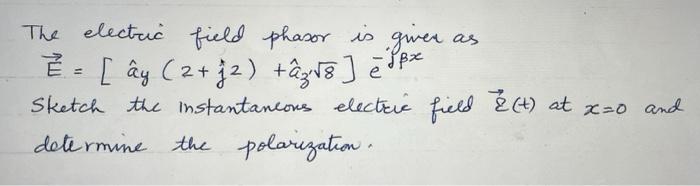 The electric field phasor is given as
E⃗ = [ ây (2 + j2) + âz √8 ] e^-jβx
Sketch the instantaneous electric field ℰ⃗(t) at x=0 and
determine the polarization.